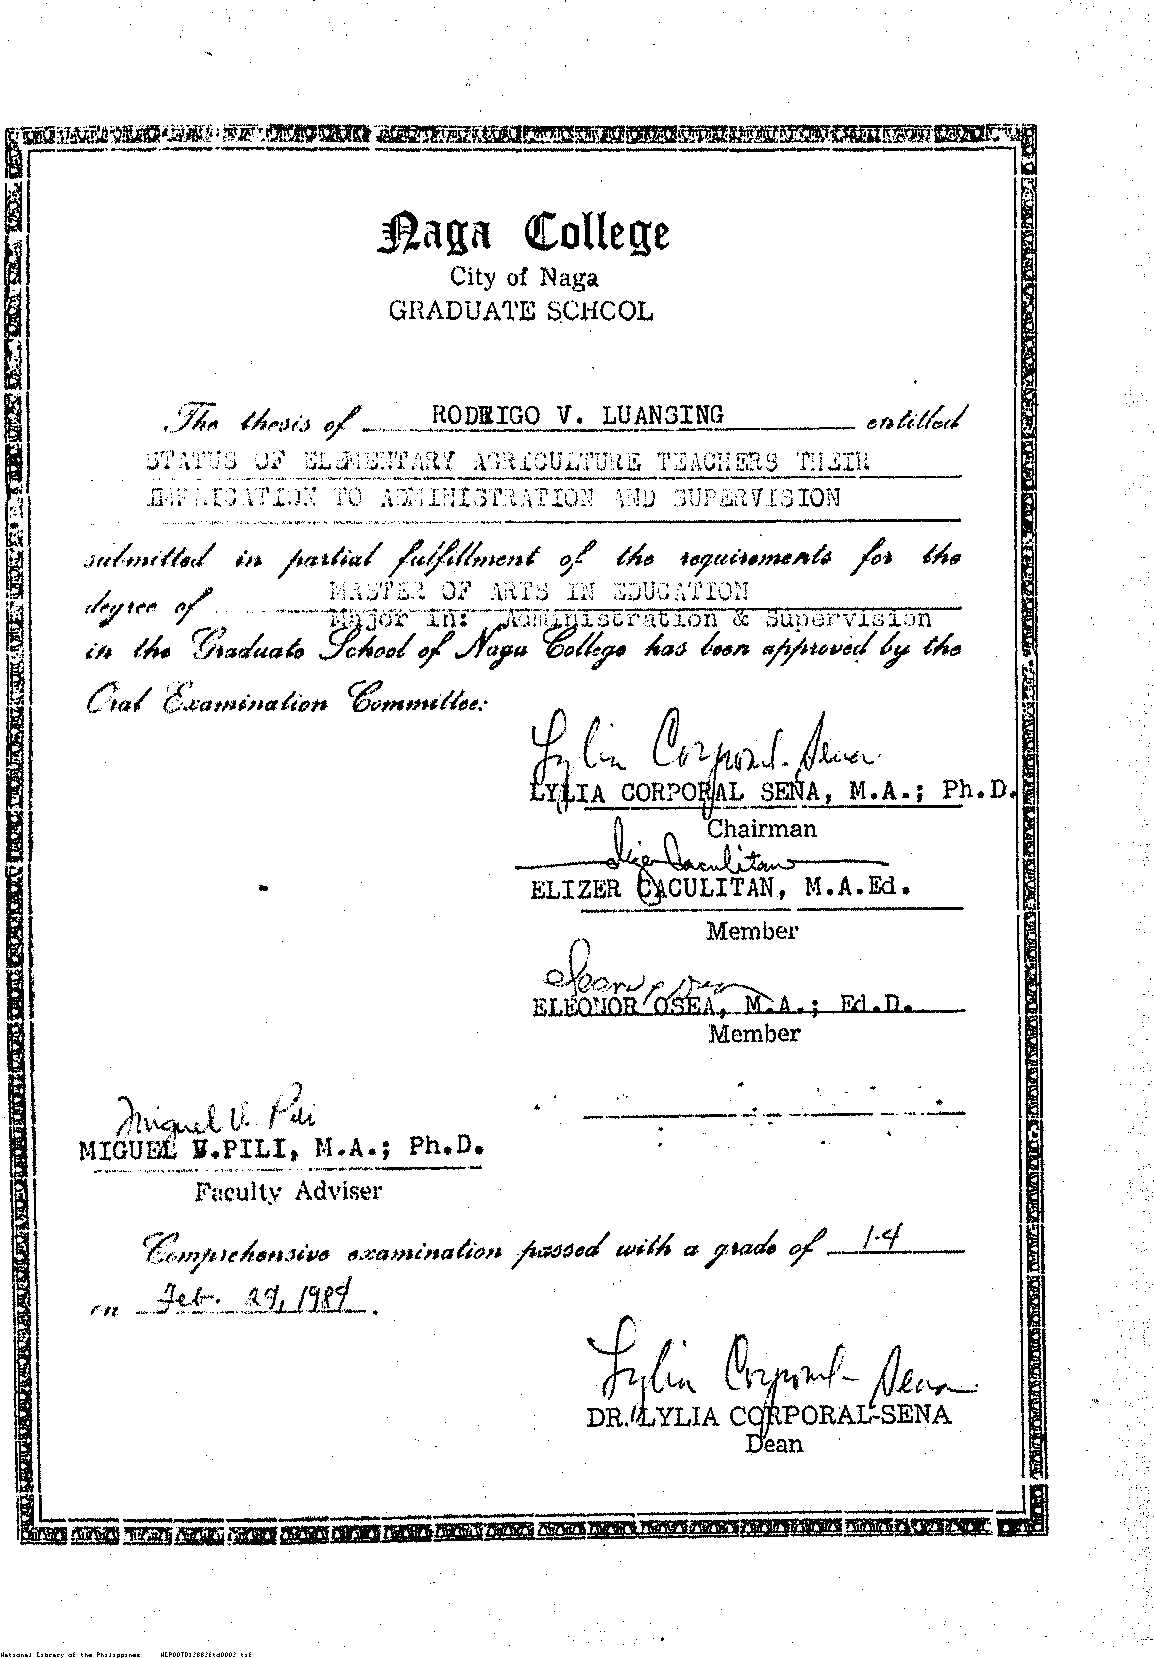 Naga College
City of Naga
GRADUATE SCHOOL
The thesis of RODRIGO V. LUANSING entitled
STATUS OF ELEMENTARY AGRICULTURE TEACHERS THEIR
IMPLICATION TO ADMINISTRATION AND SUPERVISION
submitted in partial fulfillment of the requirements for the
degree of MASTER OF ARTS IN EDUCATION
Major in: Administration & Supervision
in the Graduate School of Naga College has been approved by the
Oral Examination Committee:
Lylia Corporal-Sena
LYLIA CORPORAL SENA, M.A.; Ph.D.
Chairman
Elizer Caculitan
ELIZER CACULITAN, M.A.Ed.
Member
ELEONOR OSEA, M.A.; Ed.D.
Member
Miguel V. Pili
MIGUEL V.PILI, M.A.; Ph.D.
Faculty Adviser
Comprehensive examination passed with a grade of 1.4
on Feb. 29, 1984.
Lylia Corporal-Sena
DR. LYLIA CORPORAL-SENA
Dean
National Library of the Philippines